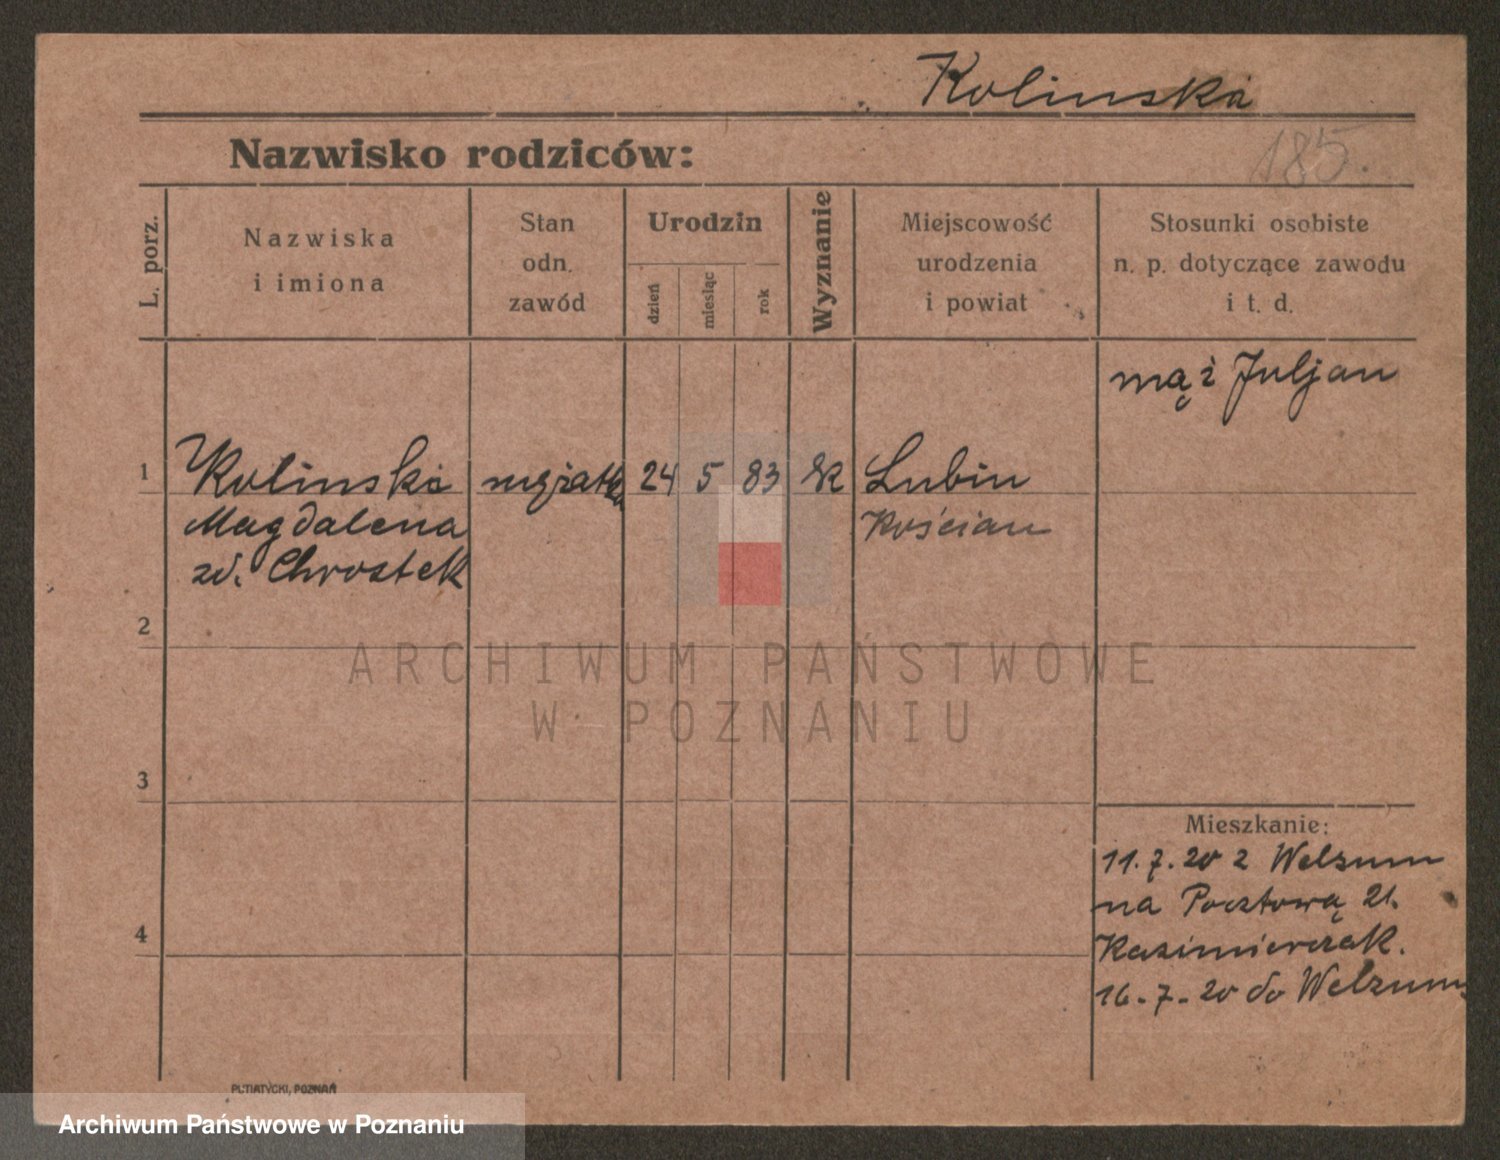 Kolinska
185.
Nazwisko rodziców:
L. porz.
Nazwiska
i imiona
Stan
odn.
zawód
Urodzin
dzień
miesiąc
rok
Wyznanie
Miejscowość
urodzenia
i powiat
Stosunki osobiste
n. p. dotyczące zawodu
i t. d.
mąż Juljan
1 Kolinska mężatka 24 5 83 rk Lubin
Magdalena Kościan
zd. Chrostek
2
ARCHIWUM PAŃSTWOWE
W POZNANIU
3
Mieszkanie:
11.7.20 z Welsum
na Pocztową 21.
4 Kazimierczak.
16.-7.-20 do Welsum
PUTIATYCKI, POZNAŃ
Archiwum Państwowe w Poznaniu